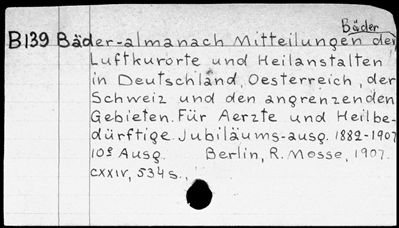 Bäder
B139 Bäder-almanach Mitteilungen der
Luftkurorte und Heilanstalten
in Deutschland, Oesterreich, der
Schweiz und den angrenzenden
Gebieten. Für Aerzte und Heilbe-
dürftige. Jubiläums-ausg. 1882-1907
10e Ausg. Berlin, R. Mosse, 1907.
CXXIV, 534 s.